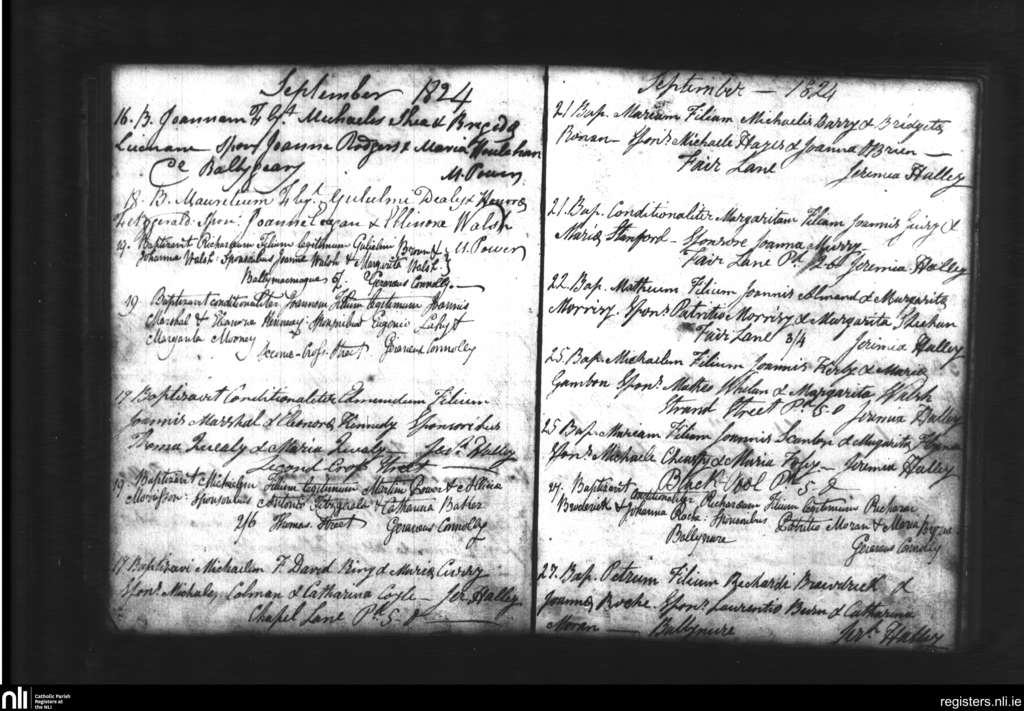 September 1824
16. B. Joannam F. legt. Michaelis Shea & Brigida
Spon. Joanne Rodgers & Maria Houlahan
M. Power
18. B. F. legt. Gulielmi Dealy & Honora
Fitzgerald. Spon: Joanne Eagan & Ellinora Walsh
M. Power
19. Baptizavit Richardum Filium legitimum Gulielmi Brown &
Johanna Walsh: Sponsoribus Joanne Walsh & Margarita Walsh
Gerarous Connolly
19 Baptizavit conditionaliter Joannem Filium legitimum Joannis
Marshal & Elanora Kennedy: Sponsoribus Eugenio &
Margarita Mooney
Street Gerarous Connolly
19 Baptizavit Conditionaliter Edmundum Filium
Joannis Marshal & Eleonora Kennedy Sponsoribus
Thoma Quealy & Maria Quealy Halley
Second Cross Street
19 Baptizavit Michaelem Filium legitimum Martini Power & Allicia
Sponsoribus Antonio Fitzgerald & Catharina Baker
2/6 Thomas Street Gerarous Connolly
19 Baptizavi Michaelem F. David Ring & Maria Curry
Spons. Michale Colman & Catharina Coyle Jer. Halley
Chapel Lane Pd. 5.0
September 1824
21 Bap. Mariam Filiam Michaelis Barry & Bridgeta
Ronan Spons. Michaele Hayes & Joanna OBrien
Fair Lane Jeremia Halley
21. Bap. Conditionaliter Margaritam Filiam Joannis &
Maria Stanford Sponsore Joanna Murry
Fair Lane Pd. Jeremia Halley
22. Bap. Matheum Filium Joannis Almand & Margarita
Morrisy. Spons. Patritio Morrisy & Margarita Shehan
Fair Lane 3/4 Jeremia Halley
25. Bap. Michaelem Filium Joannis Kerby & Maria
Gambon Spons. Matteo Whelan & Margarita Walsh
Strand Street Pd. 5.0 Jeremia Halley
25 Bap. Mariam Filiam Joannis Scanlon & Margarita
Spons. Michaele & Maria Foley Jeremia Halley
Black Pool Pd. 5
27. Baptizavit conditionaliter Richardum Filium legitimum Richardi
Broderick & Johanna Roche: Sponsoribus Patritio Moran & Maria
Ballynure Gerarous Connolly
27. Bap. Petrum Filium Richardi &
Joanna Roche. Spons. Laurentio & Catharina
Moran Ballynure Jer. Halley
nli
Catholic Parish
Registers at
the NLI
registers.nli.ie